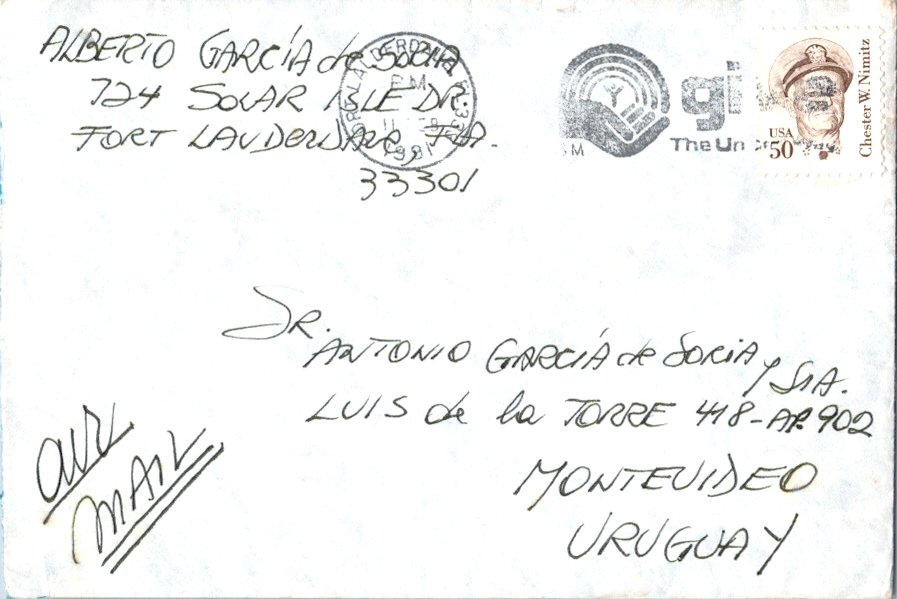 ALBERTO GARCÍA de SORIA
724 SOLAR ISLE DR.
FORT LAUDERDALE, FLA.
33301
PM
1981
gi
The Un
SM
USA
50
Chester W. Nimitz
Sr.
ANTONIO GARCÍA de SORIA y SRA.
LUIS de la TORRE 418-AP. 902
MONTEVIDEO
URUGUAY
AIR
MAIL